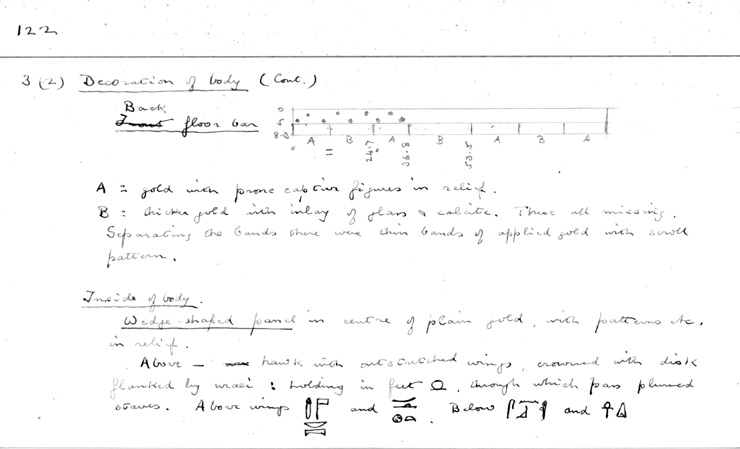 122
3 (2) Decoration of body (Cont.)
Back
Front floor bar
0
5
8.3
A B A B A B A
0 11 24.7 36.8 53.5
A = gold with prone captive figures in relief.
B = thicker gold with inlay of glass & calcite. These all missing.
Separating the bands there were thin bands of applied gold with scroll
pattern.
Inside of body.
Wedge-shaped panel in centre of plain gold, with patterns etc.
in relief.
Above - hawk with outstretched wings, crowned with disk
flanked by uraei: holding in feet Ω, through which pass plumed
staves. Above wings and . Below and